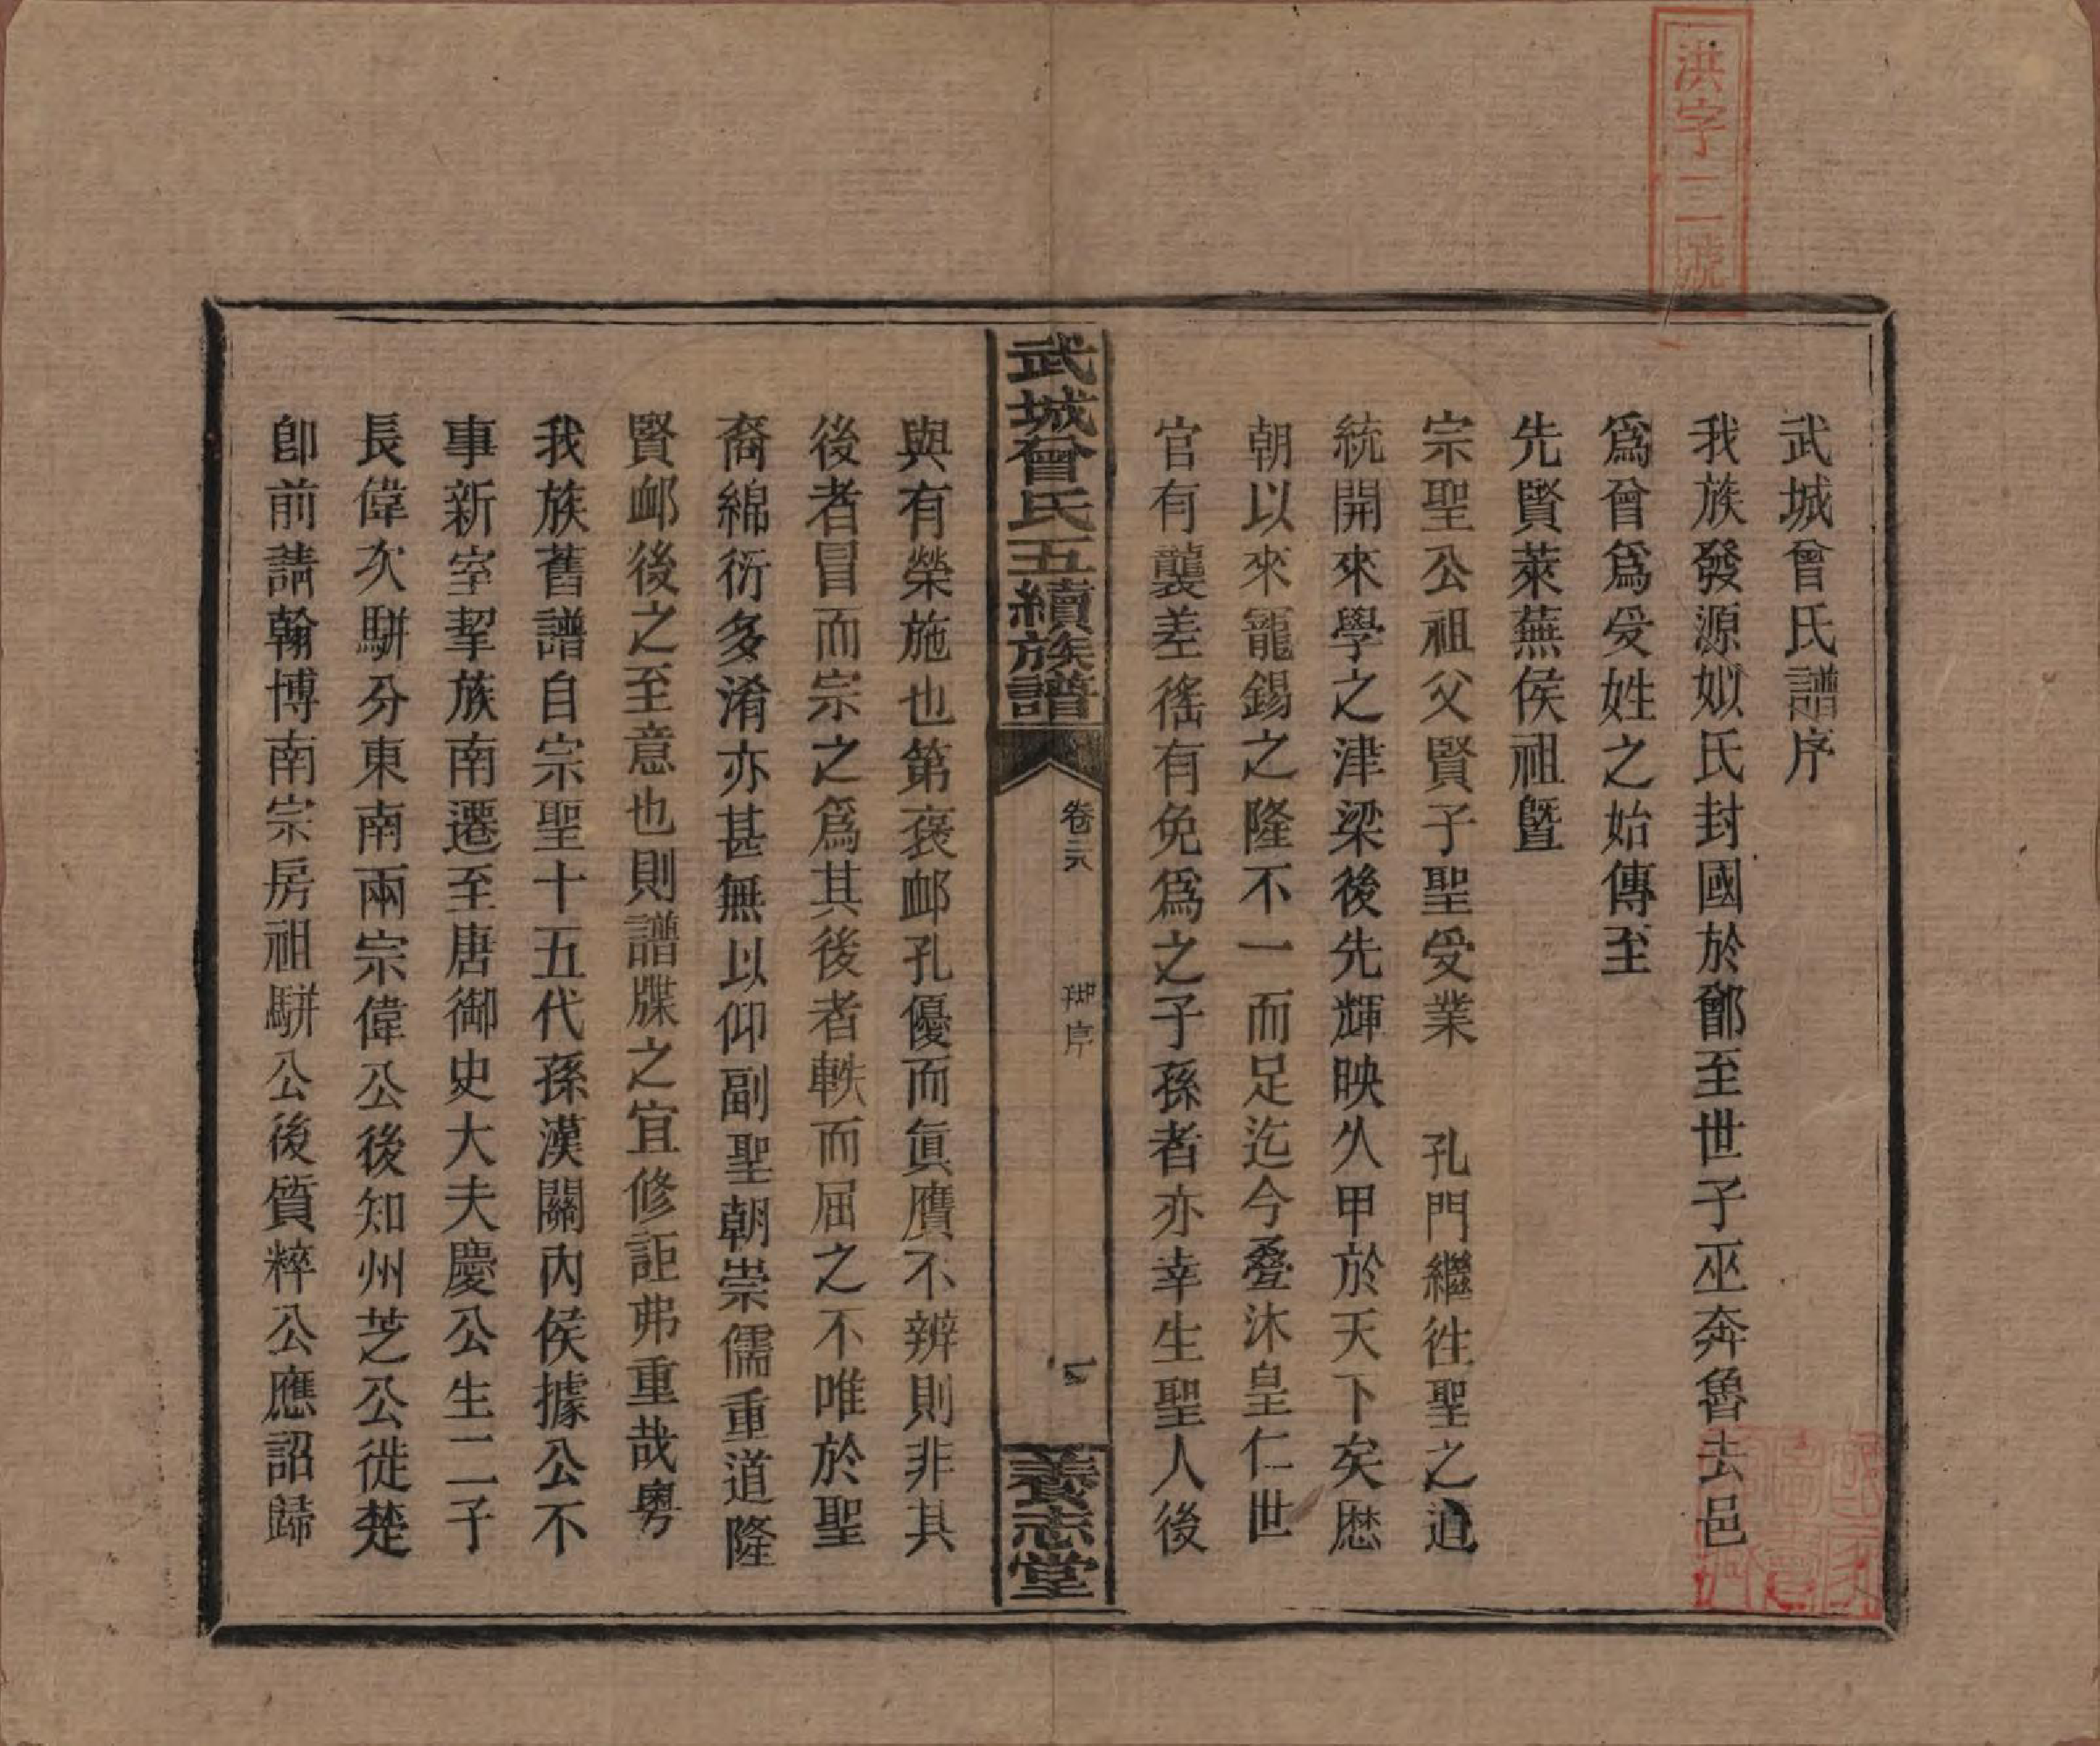 洪字二號
武城曾氏譜序
我族發源姒氏封國於鄫至世子巫奔魯去邑
爲曾爲受姓之始傳至
先賢萊蕪侯祖暨
宗聖公祖父賢子聖受業 孔門繼徃聖之道
統開來學之津梁後先輝映久甲於天下矣歷
朝以來寵錫之隆不一而足迄今叠沐皇仁世
官有襲差徭有免爲之子孫者亦幸生聖人後
武城曾氏五續族譜
序
養志堂
與有榮施也第褒䘏孔優而眞贋不辨則非其
後者冒而宗之爲其後者軼而屈之不唯於聖
裔綿衍多淆亦甚無以仰副聖朝崇儒重道隆
賢䘏後之至意也則譜牒之宜修詎弗重哉粵
我族舊譜自宗聖十五代孫漢關內侯據公不
事新室挈族南遷至唐御史大夫慶公生二子
長偉次駢分東南兩宗偉公後知州芝公徙楚
卽前請翰博南宗房祖駢公後質粹公應詔歸